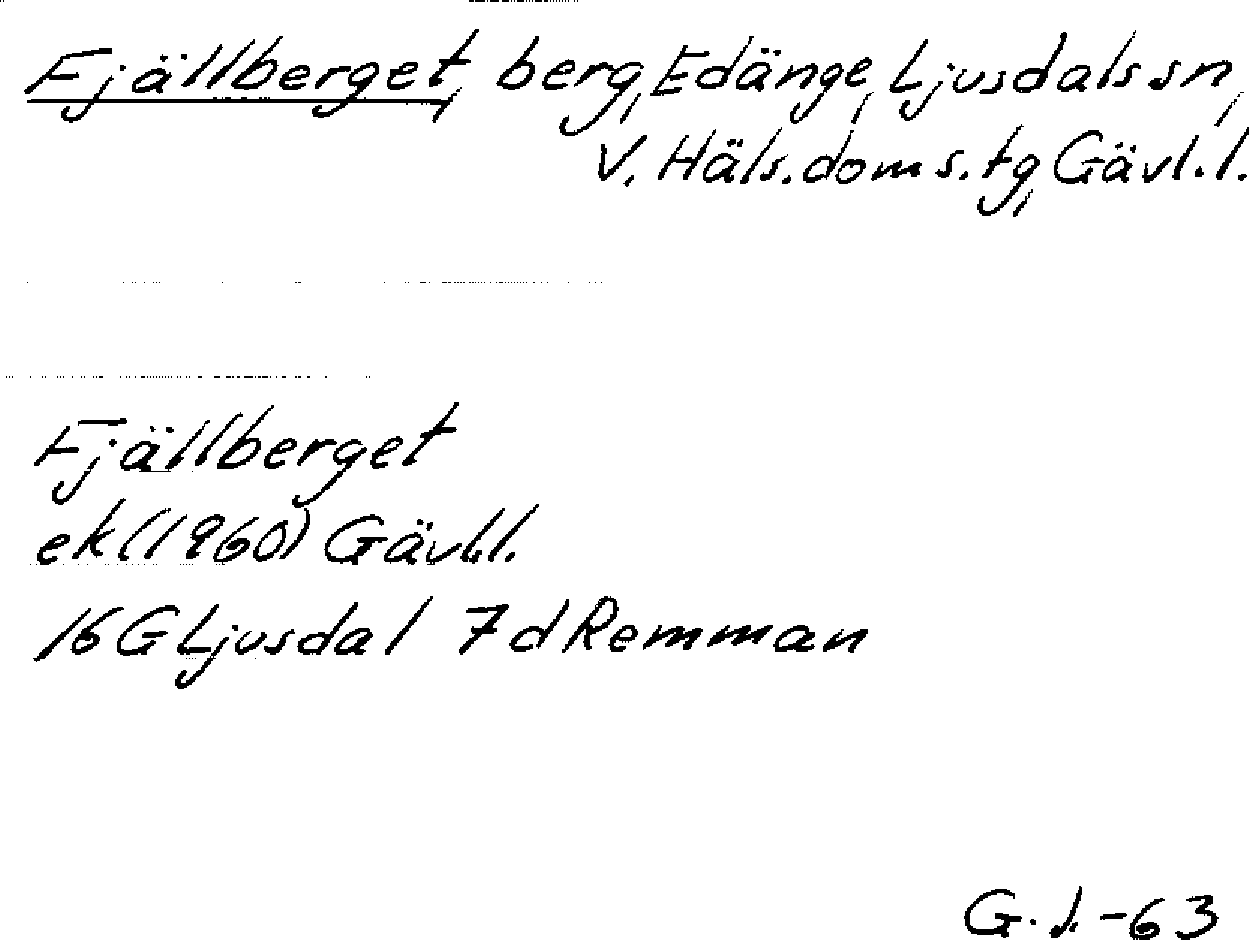 Fjällberget, berg, Edänge, Ljusdals sn,
V. Häls. doms. tg, Gävl. l.
Fjällberget
ek (1960) Gävl.l.
16 G Ljusdal 7 d Remman
G. J. -63